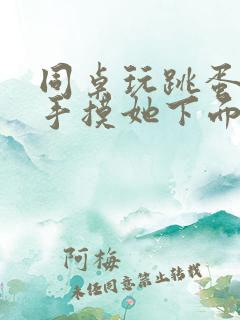 同桌玩跳蛋
手摸她下
阿梅
未经同意禁止转载